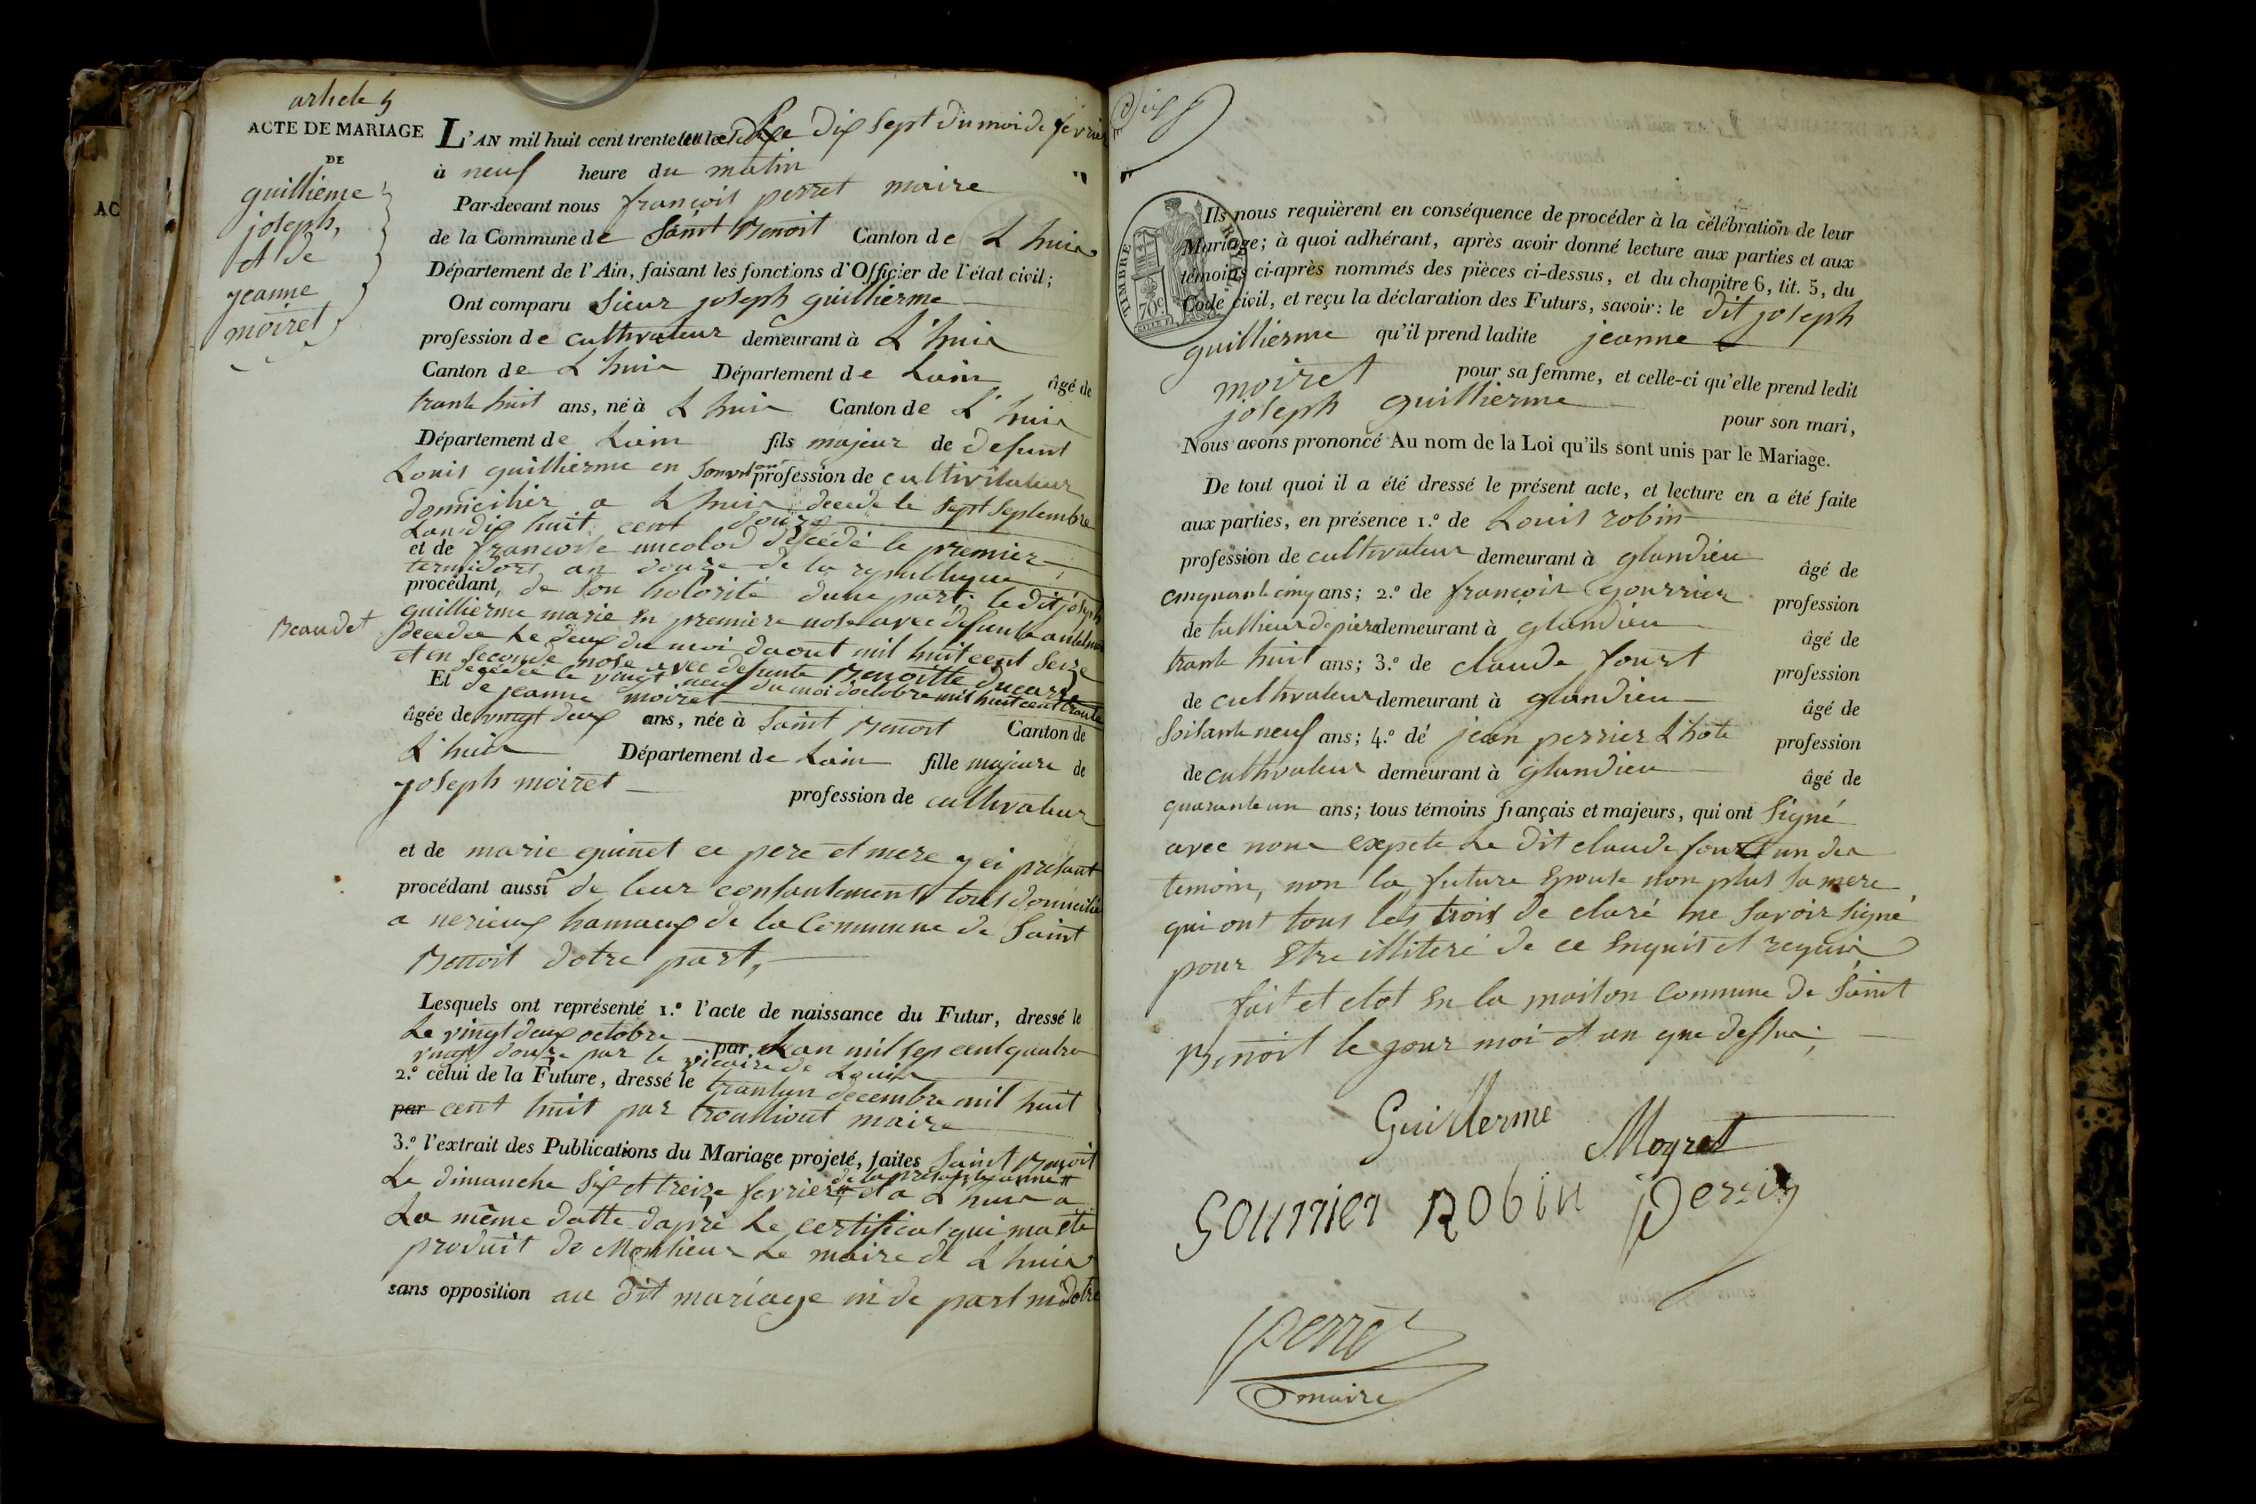 article 5
ACTE DE MARIAGE
DE
guillieme
joseph,
et de
jeanne
moiret,
L'AN mil huit cent trente Le dix sept du moi de fevrier
à neuf heure du matin
Par-devant nous françois perret maire
de la Commune de Saint Benoit Canton de L huis
Département de l'Ain, faisant les fonctions d'Officier de l'état civil;
Ont comparu Sieur joseph guillierme
profession de cultivateur demeurant à L'huis
Canton de L huis Département de Lain âgé de
trante huit ans, né à L huis Canton de L'huis
Département de Lain fils majeur de defunt
Louis guillierme en Son vivant profession de cultivitateur
domicilier a L huis decede le Sept Septembre
Lan dix huit cent douze
et de francoise decédé le premier
termidort an douze de la republique
procédant, de Son holorité dune part. le dit joseph
guillierme marie en premiere nose avec defunte
Beaudet
decedee Le deux du moi daout mil huit cent Seize
et en Seconde nose avec defunte Benoitte
decedee le vingt neuf du moi doctobre mil huit cent trante
Et de jeanne moiret
âgée de vingt deux ans, née à Saint Benoit Canton de
L'huis Département de Lain fille majeure de
joseph moiret profession de cultivateur
et de marie guinet ce pere et mere y ci présant
procédant aussi de leur consantement tous domicilié
a nerieux hamaux de la Commune de Saint
Benoit dotre part,
Lesquels ont représenté 1.º l'acte de naissance du Futur, dressé le
Le vingt deux octobre par Lan mil sep cent quatre
vingt douze par le vicaire de Lhuis
2.º celui de la Future, dressé le trantun decembre mil huit
par cent huit par trouilliout maire
3.º l'extrait des Publications du Mariage projeté, faites Saint Benoit
de la présante annee
Le dimanche Six et treize fevrier et a L huis a
La même datte dapré Le certificat qui ma été
produit de Monsieur Le maire de L huis
sans opposition au dit mariage ni de part ni dotre
Ils nous requièrent en conséquence de procéder à la célébration de leur
Mariage; à quoi adhérant, après avoir donné lecture aux parties et aux
témoins ci-après nommés des pièces ci-dessus, et du chapitre 6, tit. 5, du
Code civil, et reçu la déclaration des Futurs, savoir: le dit joseph
TIMBRE ROYAL
70c
guillierme qu'il prend ladite jeanne
moiret pour sa femme, et celle-ci qu'elle prend ledit
joseph guillierme pour son mari,
Nous avons prononcé Au nom de la Loi qu'ils sont unis par le Mariage.
De tout quoi il a été dressé le présent acte, et lecture en a été faite
aux parties, en présence 1.º de Louis robin
profession de cultivateur demeurant à glandieu âgé de
cinquante cinq ans; 2.º de françois gourrier profession
de tallieur de piere demeurant à glandieu âgé de
trante huit ans; 3.º de claude fourt profession
de cultivateur demeurant à glandieu âgé de
Soisante neuf ans; 4.º de jean perrier L'hote profession
de cultivateur demeurant à glandieu âgé de
quarante un ans; tous témoins français et majeurs, qui ont Signé
avec nous expete Le dit claude fourt un des
temoin, non la future epouse non plus Sa mere
qui ont tous les trois de claré ne Savoir Signé
pour Etre illiteré de ce Enquis et requis
fait et clot en la maison Commune de Saint
Benoit le jour moi et an que dessus,
Guillerme
Moyret
Gourrier ROBIN Perrier
perret
maire